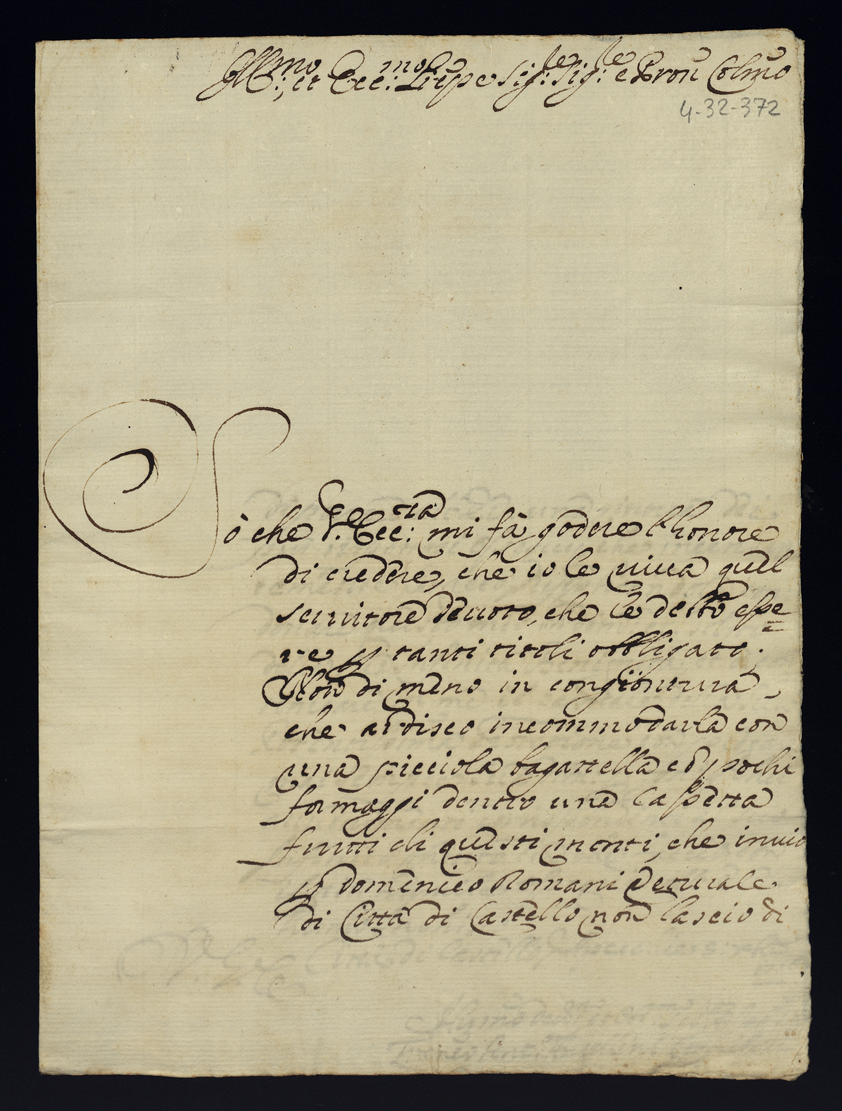 Ill:mo, et Ecc:mo Principe Sig:re Sig:re e Pron Colmo
4-32-372
Sò che V. Ecc:cia mi fà godere l'honore
di credere, che io le viva quel
servitore devoto, che le devo esse=
re p tanti titoli obbligato;
Non di meno in congiontura,
che ardisco incommodarla con
una picciola bagattella di pochi
formaggi dentro una cassetta
frutti di questi monti, che invio
p Domenico Romani Vetturale
di Città di Castello non lascio di